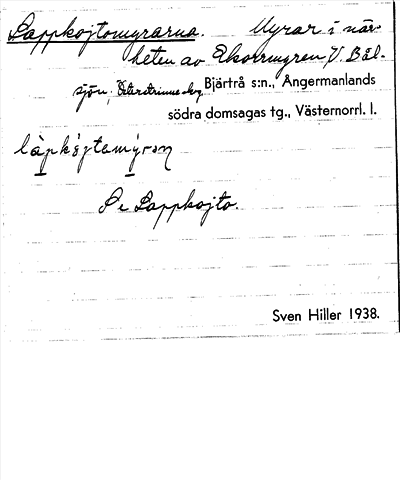 Lappkojtomyrarna. Myrar i när-
heten av Ekorrmyren V. Bäl-
sjön, Bjärtrå s:n., Ångermanlands
södra domsagas tg., Västernorrl. l.
Se Lappkojto.
Sven Hiller 1938.